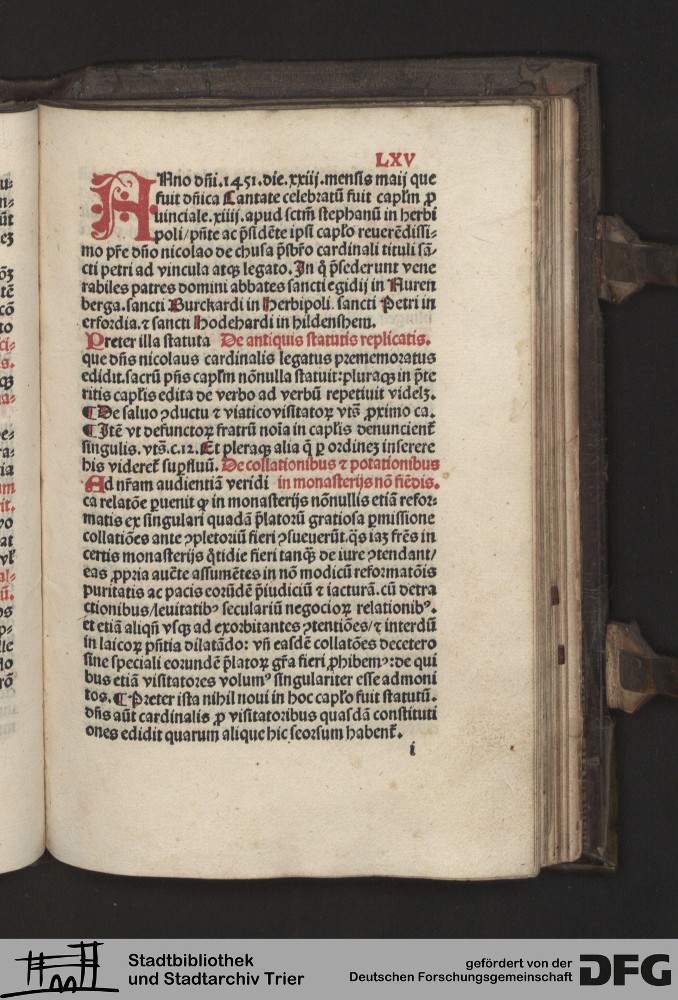 LXV
ANno dñi.1451.die.xxiij.mensis maij que
fuit dñica Cantate celebratũ fuit capłm ꝓ
uinciale.xiiij.apud sctm̃ stephanũ in herbi
poli/pñte ac p̃sidẽte ipsi capło reuerẽdissi⸗
mo pr̃e dño nicolao de chusa p̃sbr̃o cardinali tituli sã⸗
cti petri ad vincula atqꝫ legato. In q̃ p̃sederunt vene
rabiles patres domini abbates sancti egidij in Nuren
berga.sancti Burckardi in Herbipoli. sancti Petri in
erfordia.⁊ sancti Hodehardi in hildenshem.
Preter illa statuta De antiquis statutis replicatis.
que dñs nicolaus cardinalis legatus prememoratus
edidit.sacrũ pñs capłm nõnulla statuit:pluraqꝫ in p̃te
ritis capłis edita de verbo ad verbũ repetiuit videlꝫ.
¶ De saluo ꝯductu ⁊ viatico visitatoꝝ vts̃ ꝓximo ca.
¶ Itẽ vt defunctoꝝ fratrũ noĩa in capłis denuncient᷑
singulis. vts̃.c.12. Et pleraqꝫ alia q̃ ꝑ ordinez inserere
his videret᷑ suꝑfluũ. De collationibus ⁊ potationibus
Ad nr̃am audientiã veridi in monasterijs nõ fiẽdis.
ca relatõe ꝑuenit ꝙ in monasterijs nõnullis etiã refor⸗
matis ex singulari quadã p̃latorũ gratiosa ꝑmissione
collatiões ante ꝯpletoriũ fieri ꝯsueuerũt.q̃s iaꝫ fr̃es in
certis monasterijs q̃tidie fieri tanqꝫ̃ de iure ꝯtendant/
eas ꝓpria auc̃te assumẽtes in nõ modicũ reformatõis
puritatis ac pacis eorũdẽ p̃iudiciũ ⁊ iacturã.cũ detra
ctionibus/leuitatibꝰ seculariũ negocioꝝ relationibꝰ.
et etiã aliqñ vsqꝫ ad exorbitantes ꝯtentiões/⁊ interdũ
in laicoꝝ pñtia dilatãdo: vñ easdẽ collatões decetero
sine speciali eorundẽ p̃latoꝝ gr̃a fieri ꝓhibemꝰ:de qui
bus etiã visitatores volumꝰ singulariter esse admoni
tos. ¶ Preter ista nihil noui in hoc capło fuit statutũ.
dñs aũt cardinalis ꝓ visitatoribus quasdã constituti
ones edidit quarum alique hic seorsum habent᷑.
i
Stadtbibliothek
und Stadtarchiv Trier
gefördert von der
Deutschen Forschungsgemeinschaft
DFG